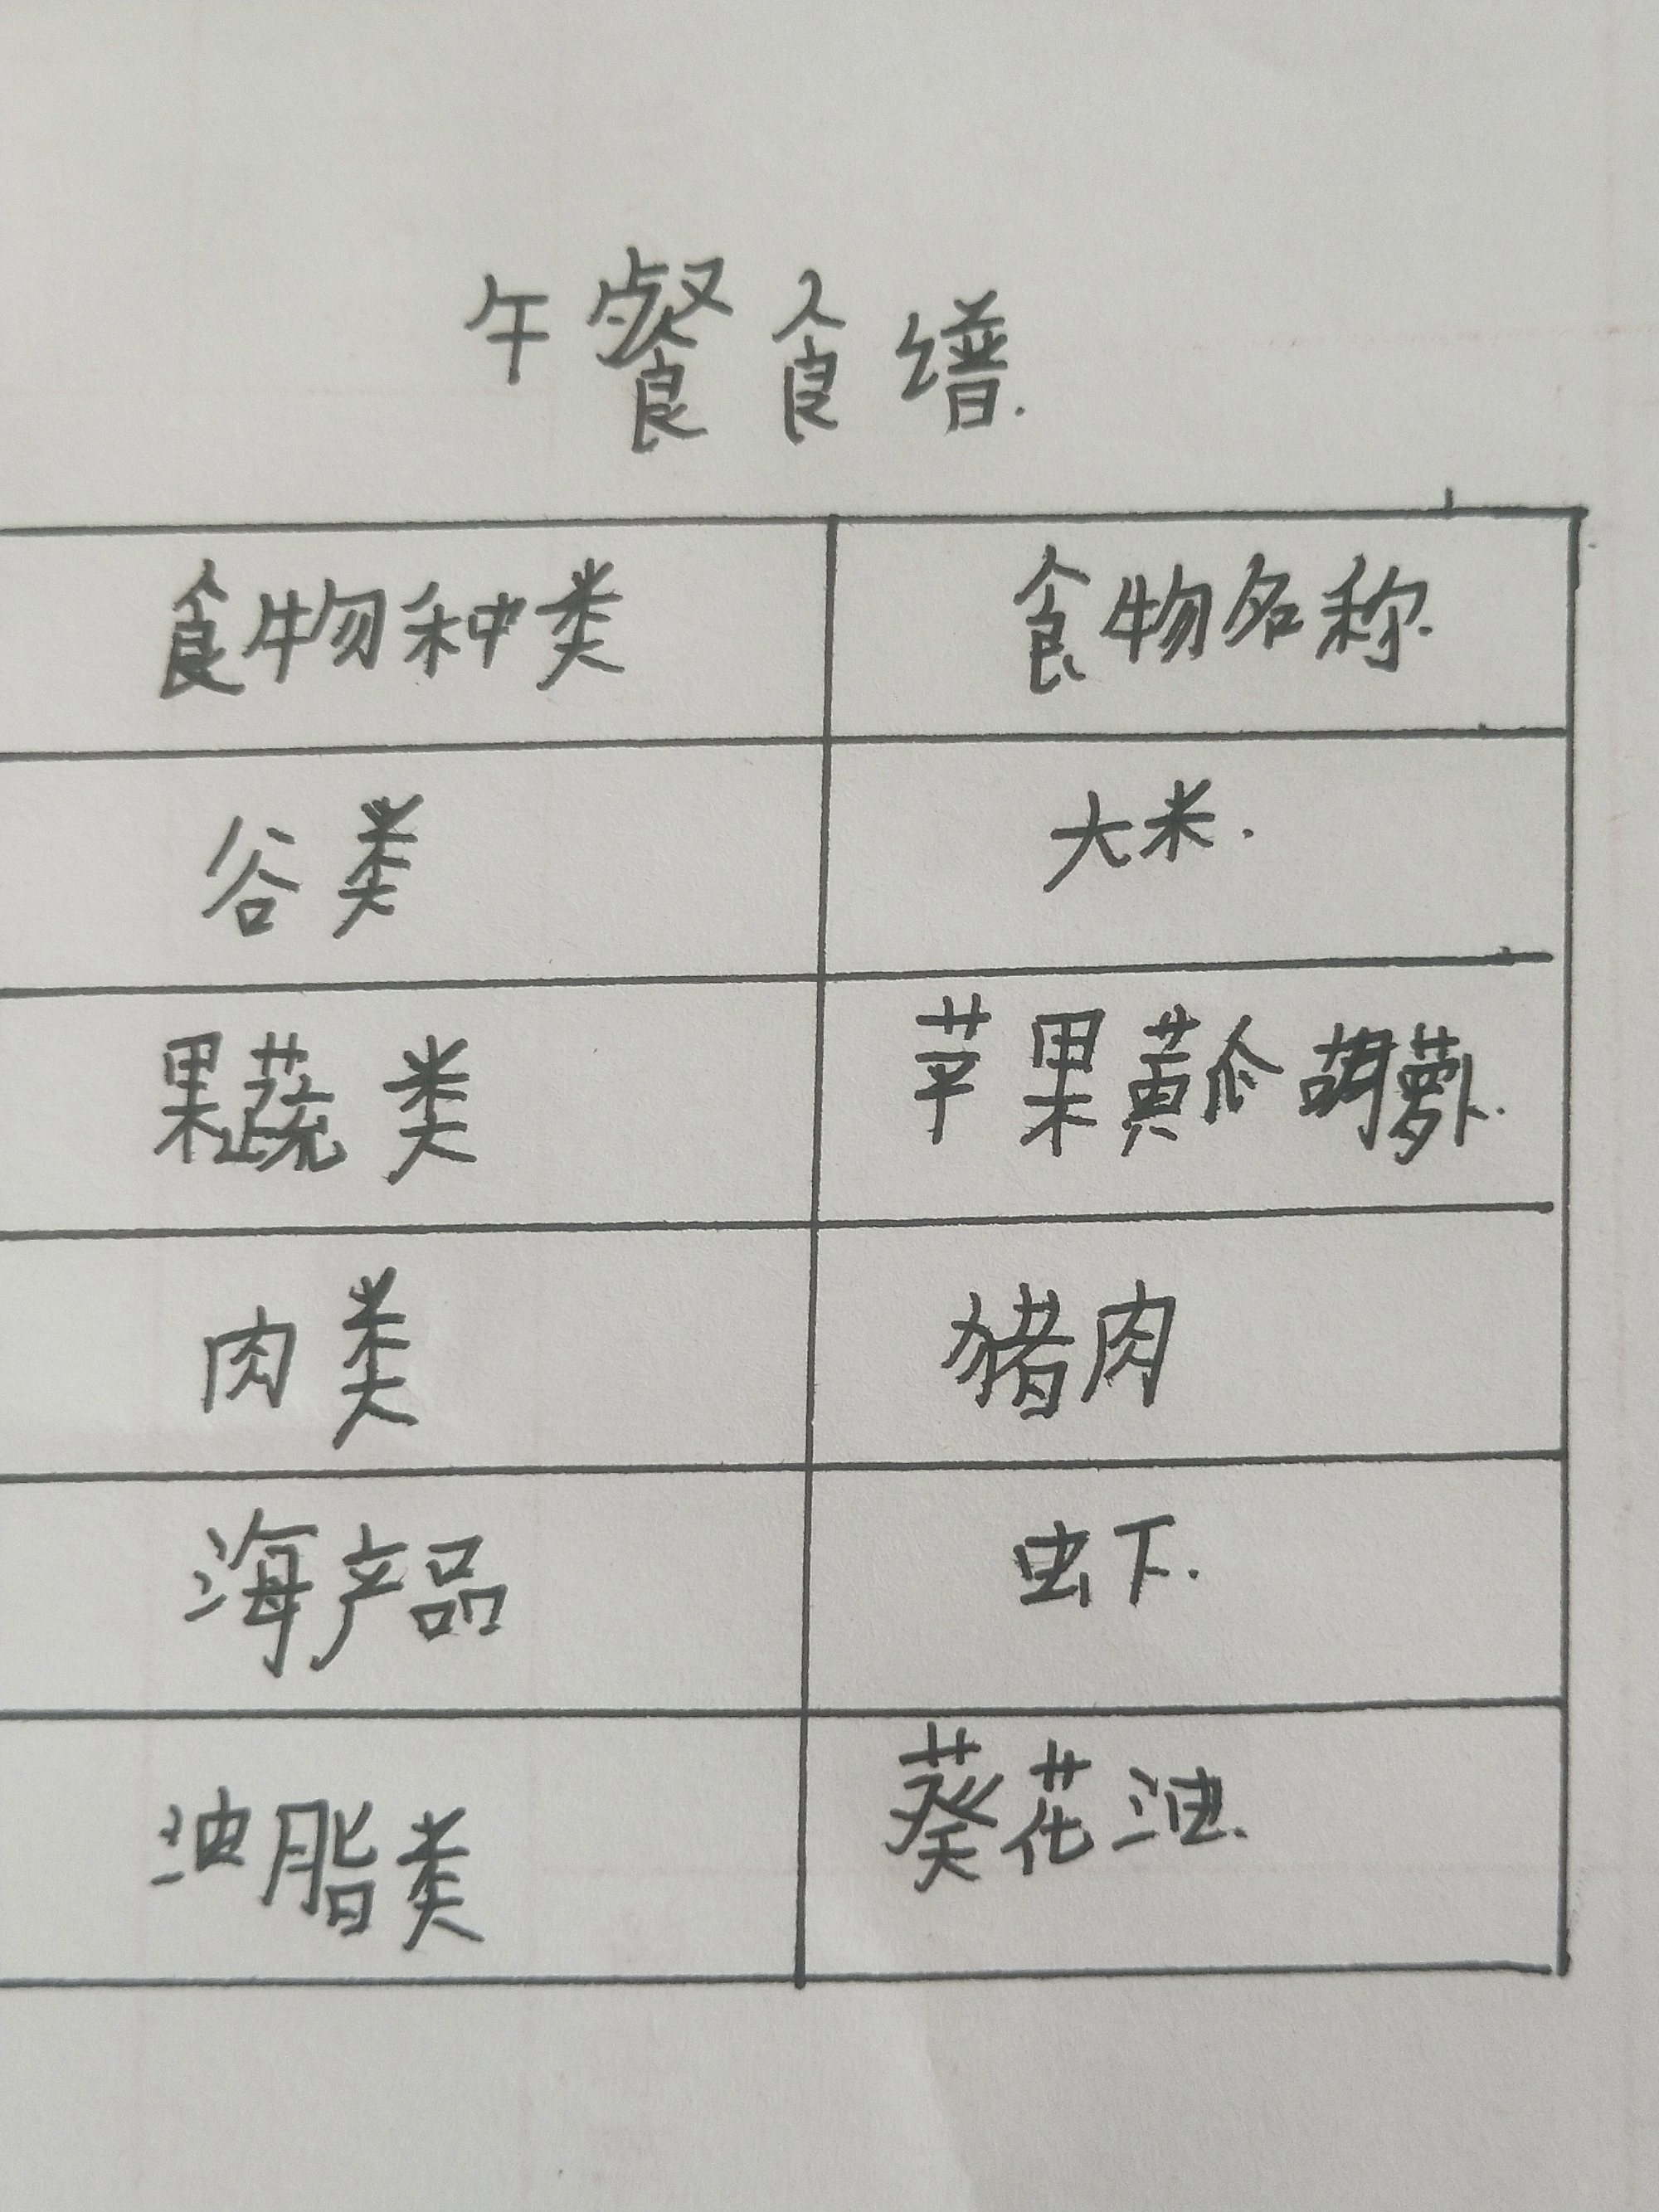 午餐食谱.
食物种类 食物名称.
谷类 大米.
果蔬类 苹果黄瓜胡萝卜.
肉类 猪肉
海产品 虾.
油脂类 葵花油.